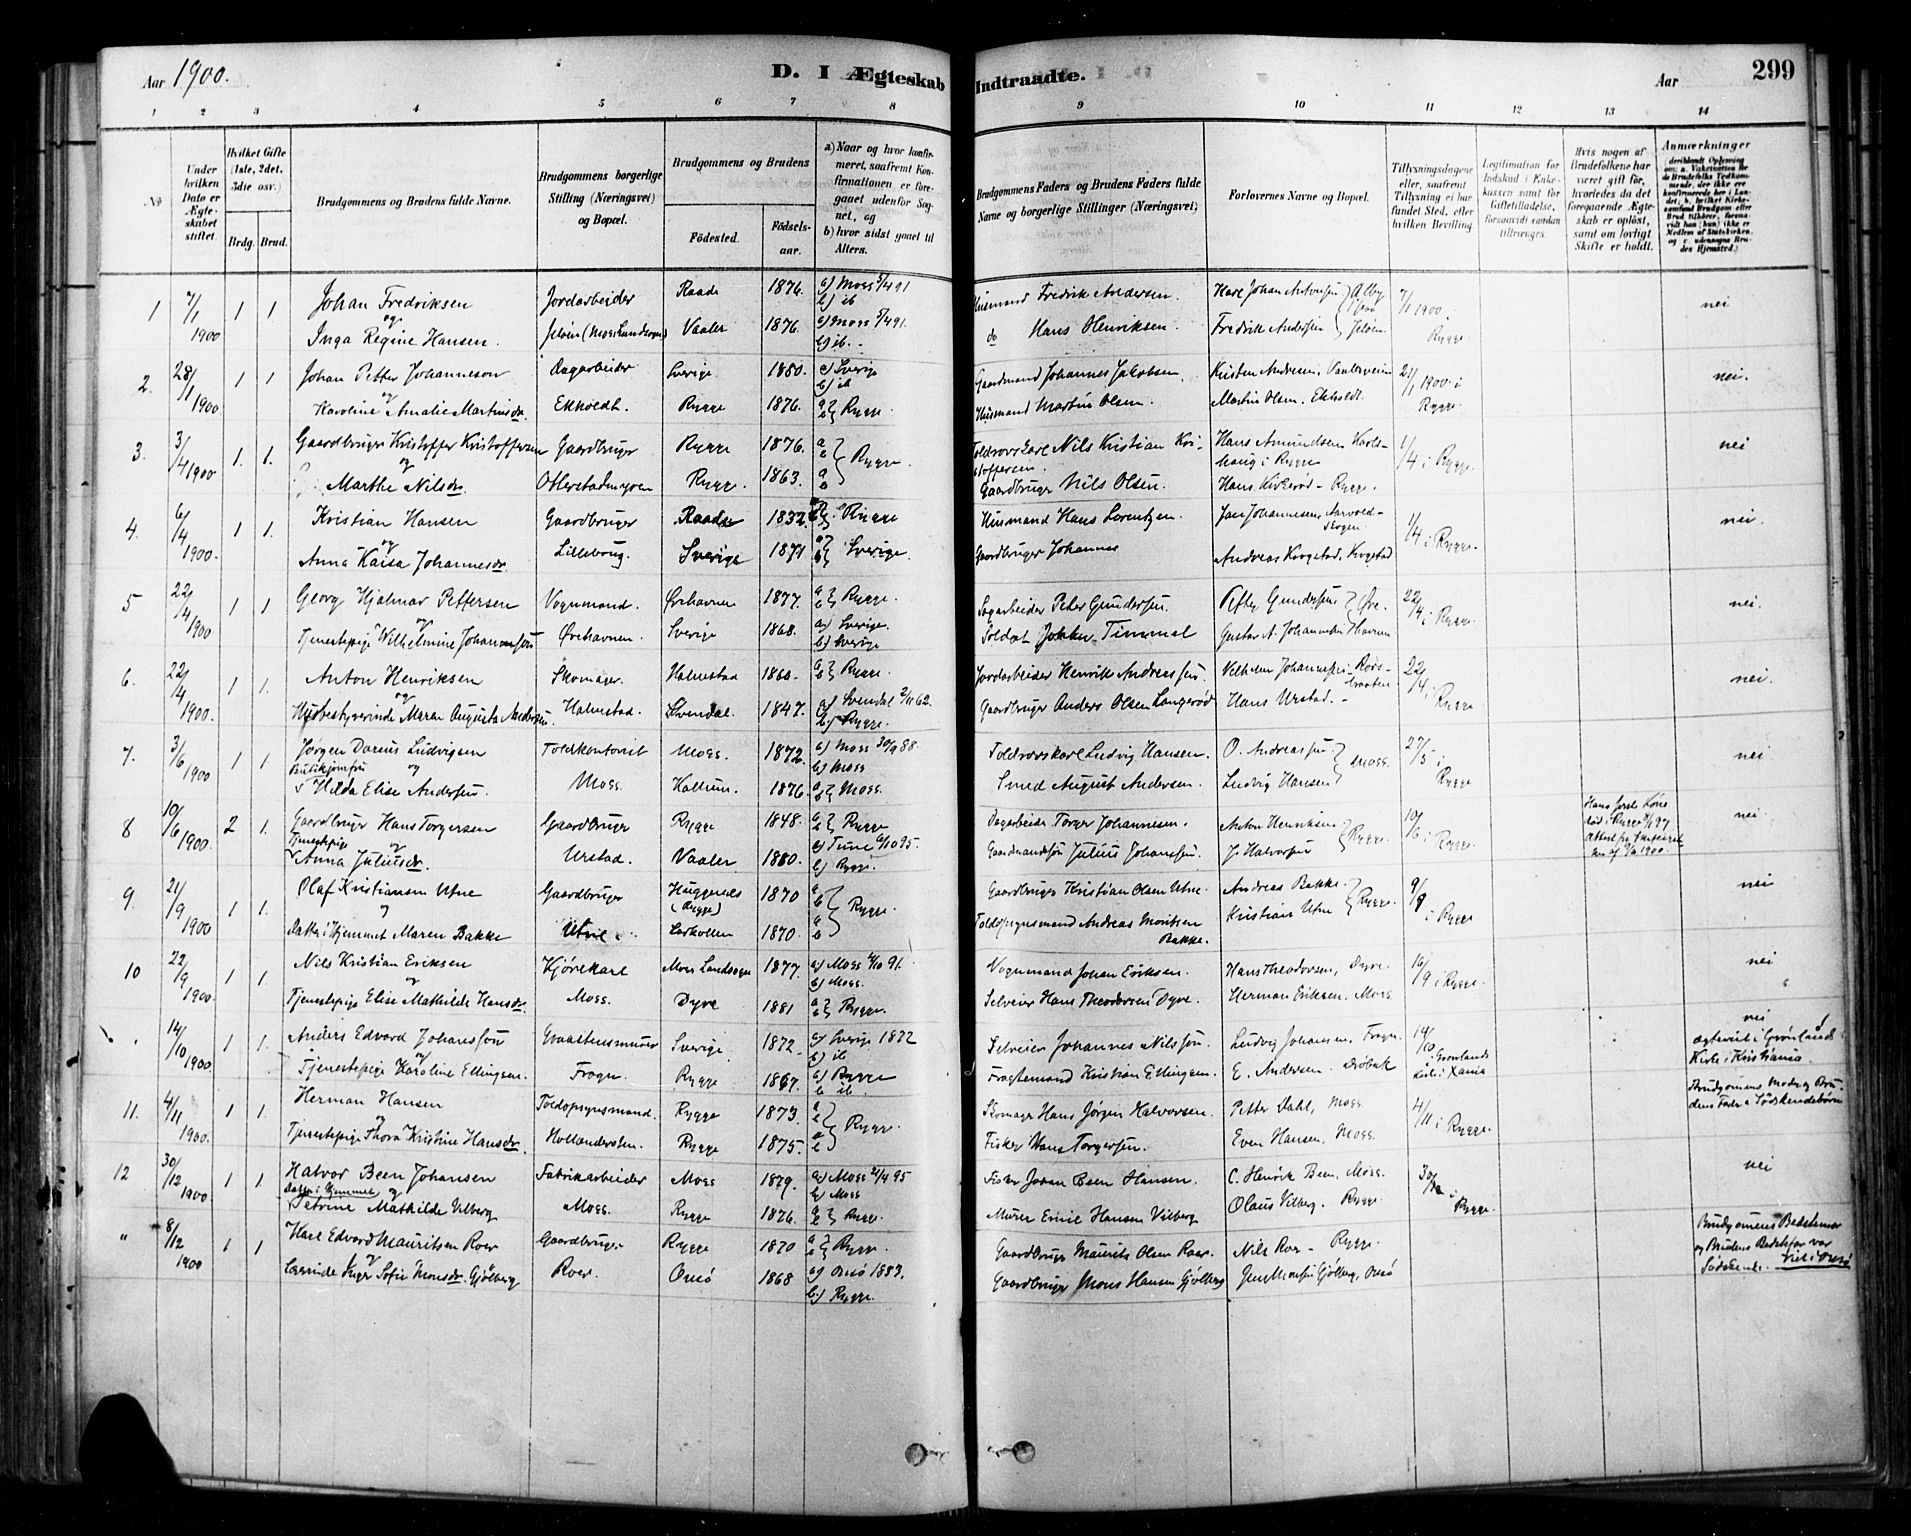 Aar 1900.
D. I Ægteskab Indtraadte.
Aar
299
1 2 3 4 5 6 7 8 9 10 11 12 13 14
No
Under hvilken Dato er Ægteskabet stiftet.
Hvilket Gifte (1ste, 2det, 3die osv.)
Brdg. Brud.
Brudgommens og Brudens fulde Navne.
Brudgommens borgerlige Stilling (Næringsvei) og Bopæl.
Brudgommens og Brudens
Fødested.
Fødselsaar.
a) Naar og hvor konfirmeret, saafremt Konfirmationen er foregaaet udenfor Sognet, og
b) hvor sidst gaaet til Alters.
Brudgommens Faders og Brudens Faders fulde Navne og borgerlige Stillinger (Næringsvei)
Forlovernes Navne og Bopæl.
Tillysningsdagene eller, saafremt Tillysning ei har fundet Sted, efter hvilken Bevilling
Legitimation for Indskud i Enkekassen samt for Giftetilladelse, forsaavidt saadan tiltrænges.
Hvis nogen af Brudefolkene har været gift før, hvorledes da det foregaaende Ægteskab er opløst, samt om lovligt Skifte er holdt.
Anmærkninger
1 7/1 1900 1 1 Johan Fredriksen Jordarbeider Raade 1876. a) Moss 5/4 91 Husmand Fredrik Andersen. Karl Johan Antonsen Alby 7/1 1900. nei
og b) ib
Inga Regine Hansen. Jeløen (Moss Landsogn) Vaaler 1876. a) Moss 5/4 91. do Hans Henriksen. Fredrik Andersen Jeløen i Rygge.
b) ib.
2. 28/1 1900 1 1 Johan Petter Johanneson Dagarbeider Sverige. 1880. a) Sverige Gaardmand Johannes Jakobsen. Kristen Andresen, 21/1 1900 i nei.
og b) ib
Karoline Amalie Martinsdr Ekholdt. Rygge 1876. Rygge. Husmand Martin Olsen. Martin Olsen. Ekholdt. Rygge
3. 3/4 1900 1. 1. Gaardbruger Kristoffer Kristoffersen Gaardbruger Rygge 1876. Rygge. Toldrorskarl Nils Kristian Kristoffersen. Hans Amundsen Karlshaug i Rygge 1/4 i Rygge. nei
og
Marthe Nilsdr Rygge. 1863. Gaardbruger Nils Olsen. Hans Kirkerød - Rygge.
4. 6/4 1900. 1 1 Kristian Hansen Gaardbruger Raade 1832. Rygge Husmand Hans Lorentzen. Johannesen, Aarvoldskogen 1/4 i Rygge. nei
og
Anna Kaisa Johannesdr. Lillebaug. Sverige 1871 Sverige. Gaardbruger Johannes Andreas Kogstad, Kogstad
5 22/4 1900 1 1 Georg Hjalmar Pettersen Vognmand. Ørehavnen 1877. Rygge. Sagarbeider Peter Gundersen. Gundersen Øre- 22/4 i Rygge. nei.
og
Tjenestepige Wilhelmine Johannesen Ørehavnen. Sverige 1868. a) Sverige. b) Sverige Soldat Timmel Gustav A. Johannesen havnen
6. 22/4 1900. 1 1. Anton Henriksen Skomager. Halmestad 1860. Rygge. Jordarbeider Henrik Andreassen. Vilhelm Johannesen - Rørsbraaten 22/4 i Rygge nei.
og
Husbestyrerinde Maren Augusta Andersen. Halmestad. Svendal. 1847. a) Svendal 2/11 62. b) Rygge. Gaardbruger Anders Olsen Langerød Hans Urstad. -
7. 3/6 1900 1 1. Jørgen Darius Ludvigsen Toldkontorist Moss. 1872. a) Moss 30/9 88. b) Moss Toldrorskarl Ludvig Hansen. O. Andreassen Moss. 27/5 i Rygge. nei
Butikjomfru og
Hilda Elise Andersen. Moss. 1876. Moss. Smed August Andersen. Ludvig Hansen
8 10/6 1900. 2 1. Gaardbruger Hans Torgersen Gaardbruger Rygge 1848. Rygge Dagarbeider Torger Johannesen. Anton Henriksen Rygge. 10/6 i Rygge. nei.
Tjenestepige og
Anna Juliusdr. Urstad. Vaaler 1880. a) Tune 6/10 95. b) Rygge. Gaardmandssøn Julius Johansen. J. Halvorsen
9. 21/9 1900 1 1. Olaf Kristiansen Utne Gaardbruger Huggenes (Rygge) 1870 Rygge. Gaardbruger Kristian Olsen Utne. Andreas Bakke. Rygge. 9/9 i Rygge nei
og
Datter i Hjemmet Maren Bakke Utne. Larkollen 1870. Toldopsynsmand Andreas Moritsen Bakke. Kristians Utne
10 22/9 1900. 1 1. Nils Kristian Eriksen Kjørekarl Moss Landsogn 1877 a) Moss 4/10 91. b) Moss. Vognmand Johan Eriksen. Hans Theodorsen, Dyre. 16/9 i Rygge. nei
Tjenestepige Elise Mathilde Hansdr. Moss. Dyre 1881 Rygge. Selveier Hans Theodorsen Dyre. Herman Eriksen. Moss
14/10 1900 1 1. Anders Edvard Johansson Graastensmurer Sverige. 1872. a) Sverige 1872 b) ib Selveier Johannes Nilsson. Ludvig Johansen, Frogn. 14/10 i Grønlands Kirke i Xania nei
ægteviet i Grønlands Kirke i Kristiania.
og
Tjenestepige Karoline Ellingsen. Frogn. Rygge 1867. a) Rygge b ib. Fragtemand Kristian Ellingsen. E. Andersen. Drøbak
11. 4/11 1900. 1 1. Herman Hansen Toldopsynsmand. Rygge 1873. Rygge. Skomager Hans Jørgen Halvorsen. Petter Dahl, Moss. 4/11 i Rygge. Brudgomens Moder og Brudens Fader e Sødskendebørn
og
Tjenestepige Thora Kristine Hansdr. Hollandersten. Rygge 1875. Fisker Hans Torgersen. Even Hansen, Moss.
12 30/12 1900 1 1 Halvor Been Johansen Fabrikarbeider Moss 1879. a) Moss 21/4 95 b) Moss Fisker Johan Been Hansen. C. Henrik Been, Moss. 30/12 i Rygge. nei
Datter i Hjemmet og
Petrine Mathilde Vilberg Moss. Rygge 1876. Rygge. Murer Emil Hansen Vilberg. Olaus Vilberg. Rygge.
" 8/12 1900 1 1. Karl Edvard Mauritsen Roer Gaardbruger Rygge 1870 Rygge. Gaardbruger Maurits Olsen Roer. Nils Roer - Rygge. Brudgomens Bedstemor og Brudens Bedstefar var Sødskende. Viet i Onsø
og
Lærerinde Inger Sofie Monsdr. Gjølberg Roer. Onsø 1868 a) Onsø 1883. b) Rygge. Gaardbruger Mons Hansen Gjølberg Jens Monsen Gjølberg, Onsø